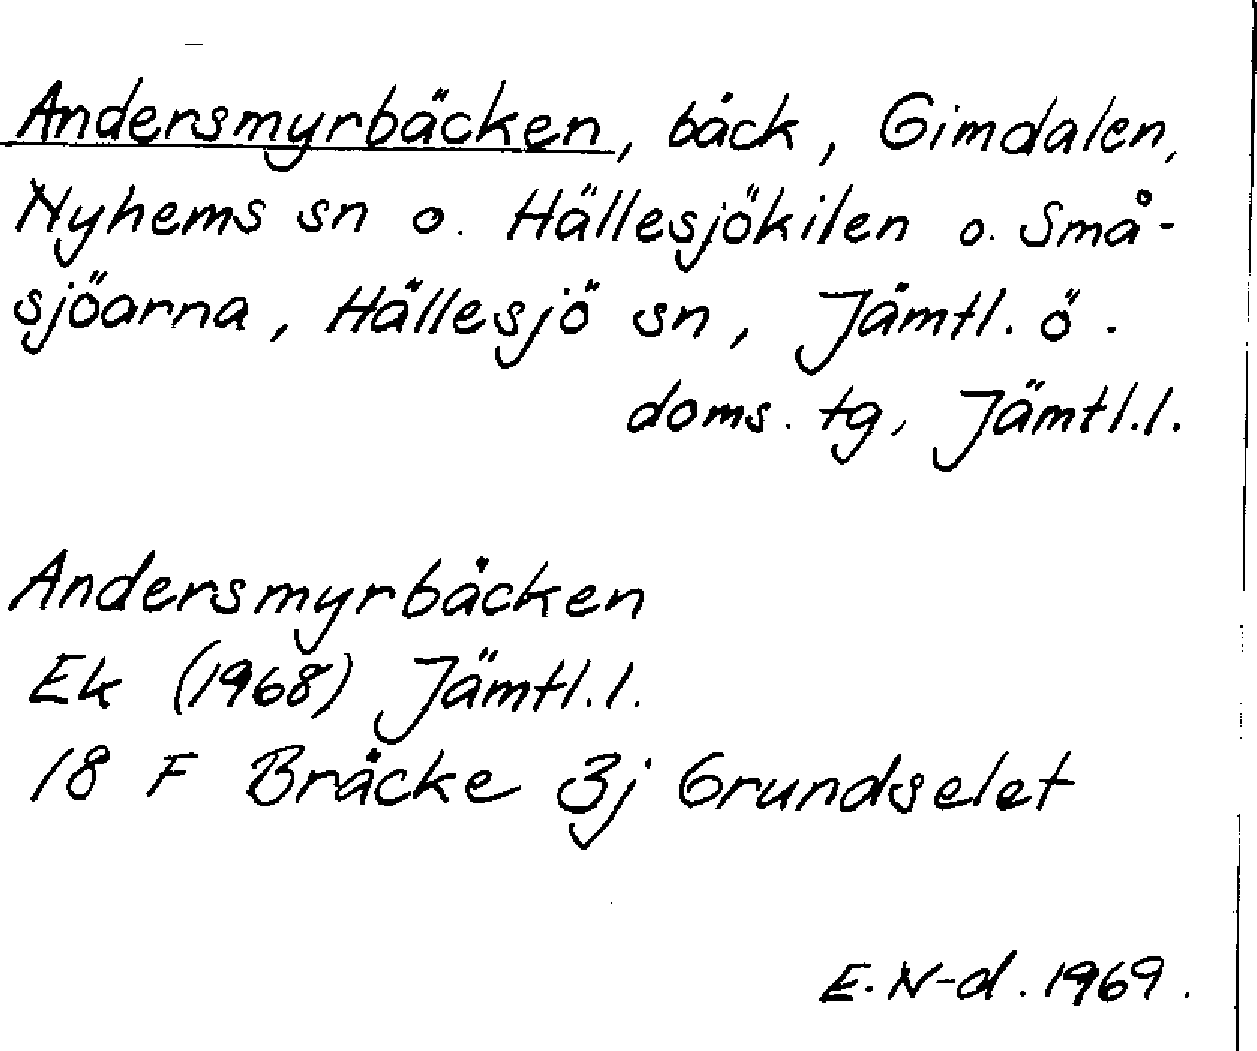 Andersmyrbäcken, bäck, Gimdalen,
Nyhems sn o. Hällesjökilen o. Små-
sjöarna, Hällesjö sn, Jämtl. ö.
doms. tg, Jämtl.l.
Andersmyrbäcken
Ek (1968) Jämtl.l.
18 F Bräcke 3j Grundselet
E. N-d. 1969.